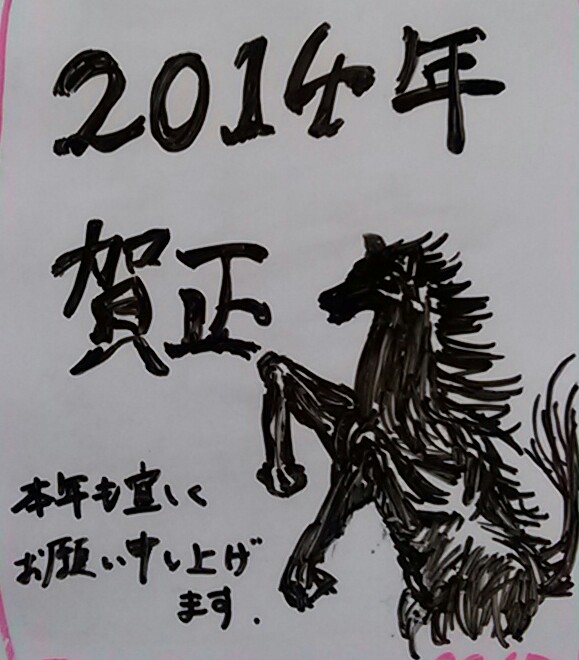 2014年
賀正
本年も宜しく
お願い申し上げ
ます.